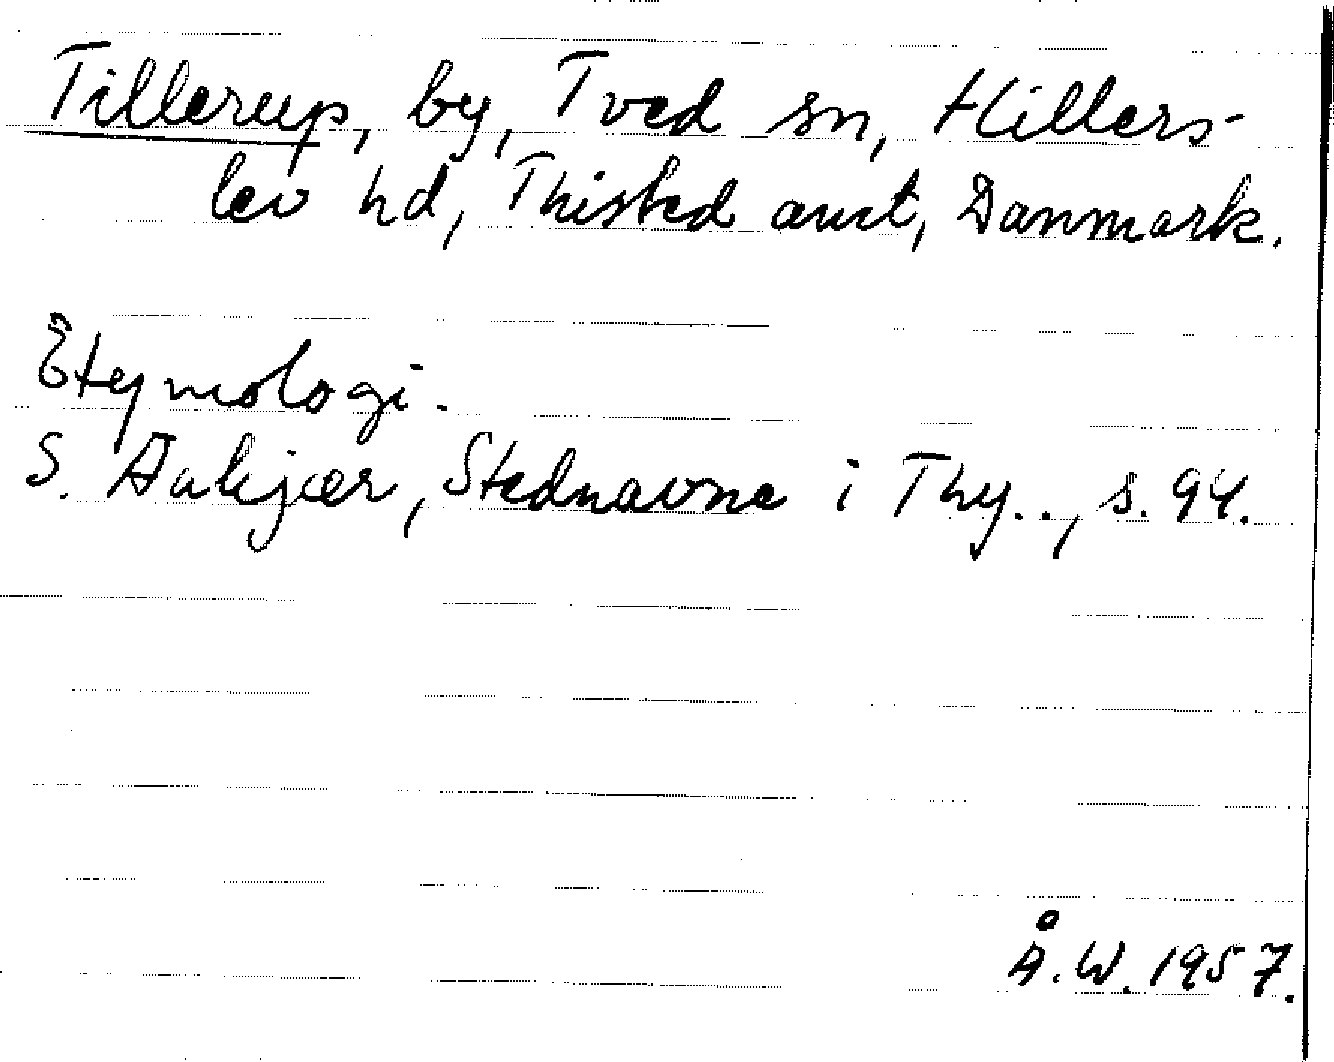 Tillerup, by, Tved sn, Hillers-
lev hd, Thisted amt, Danmark.
Etymologi.
S. Aakjær, Stednavne i Thy.., s. 94.
Å.W. 1957.